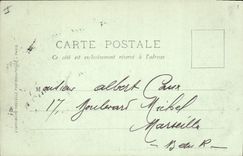 CARTE POSTALE
Ce côté est exclusivement réservé à l'adresse
Monsieur Albert
17, Boulevard Michel
Marseille
B du R